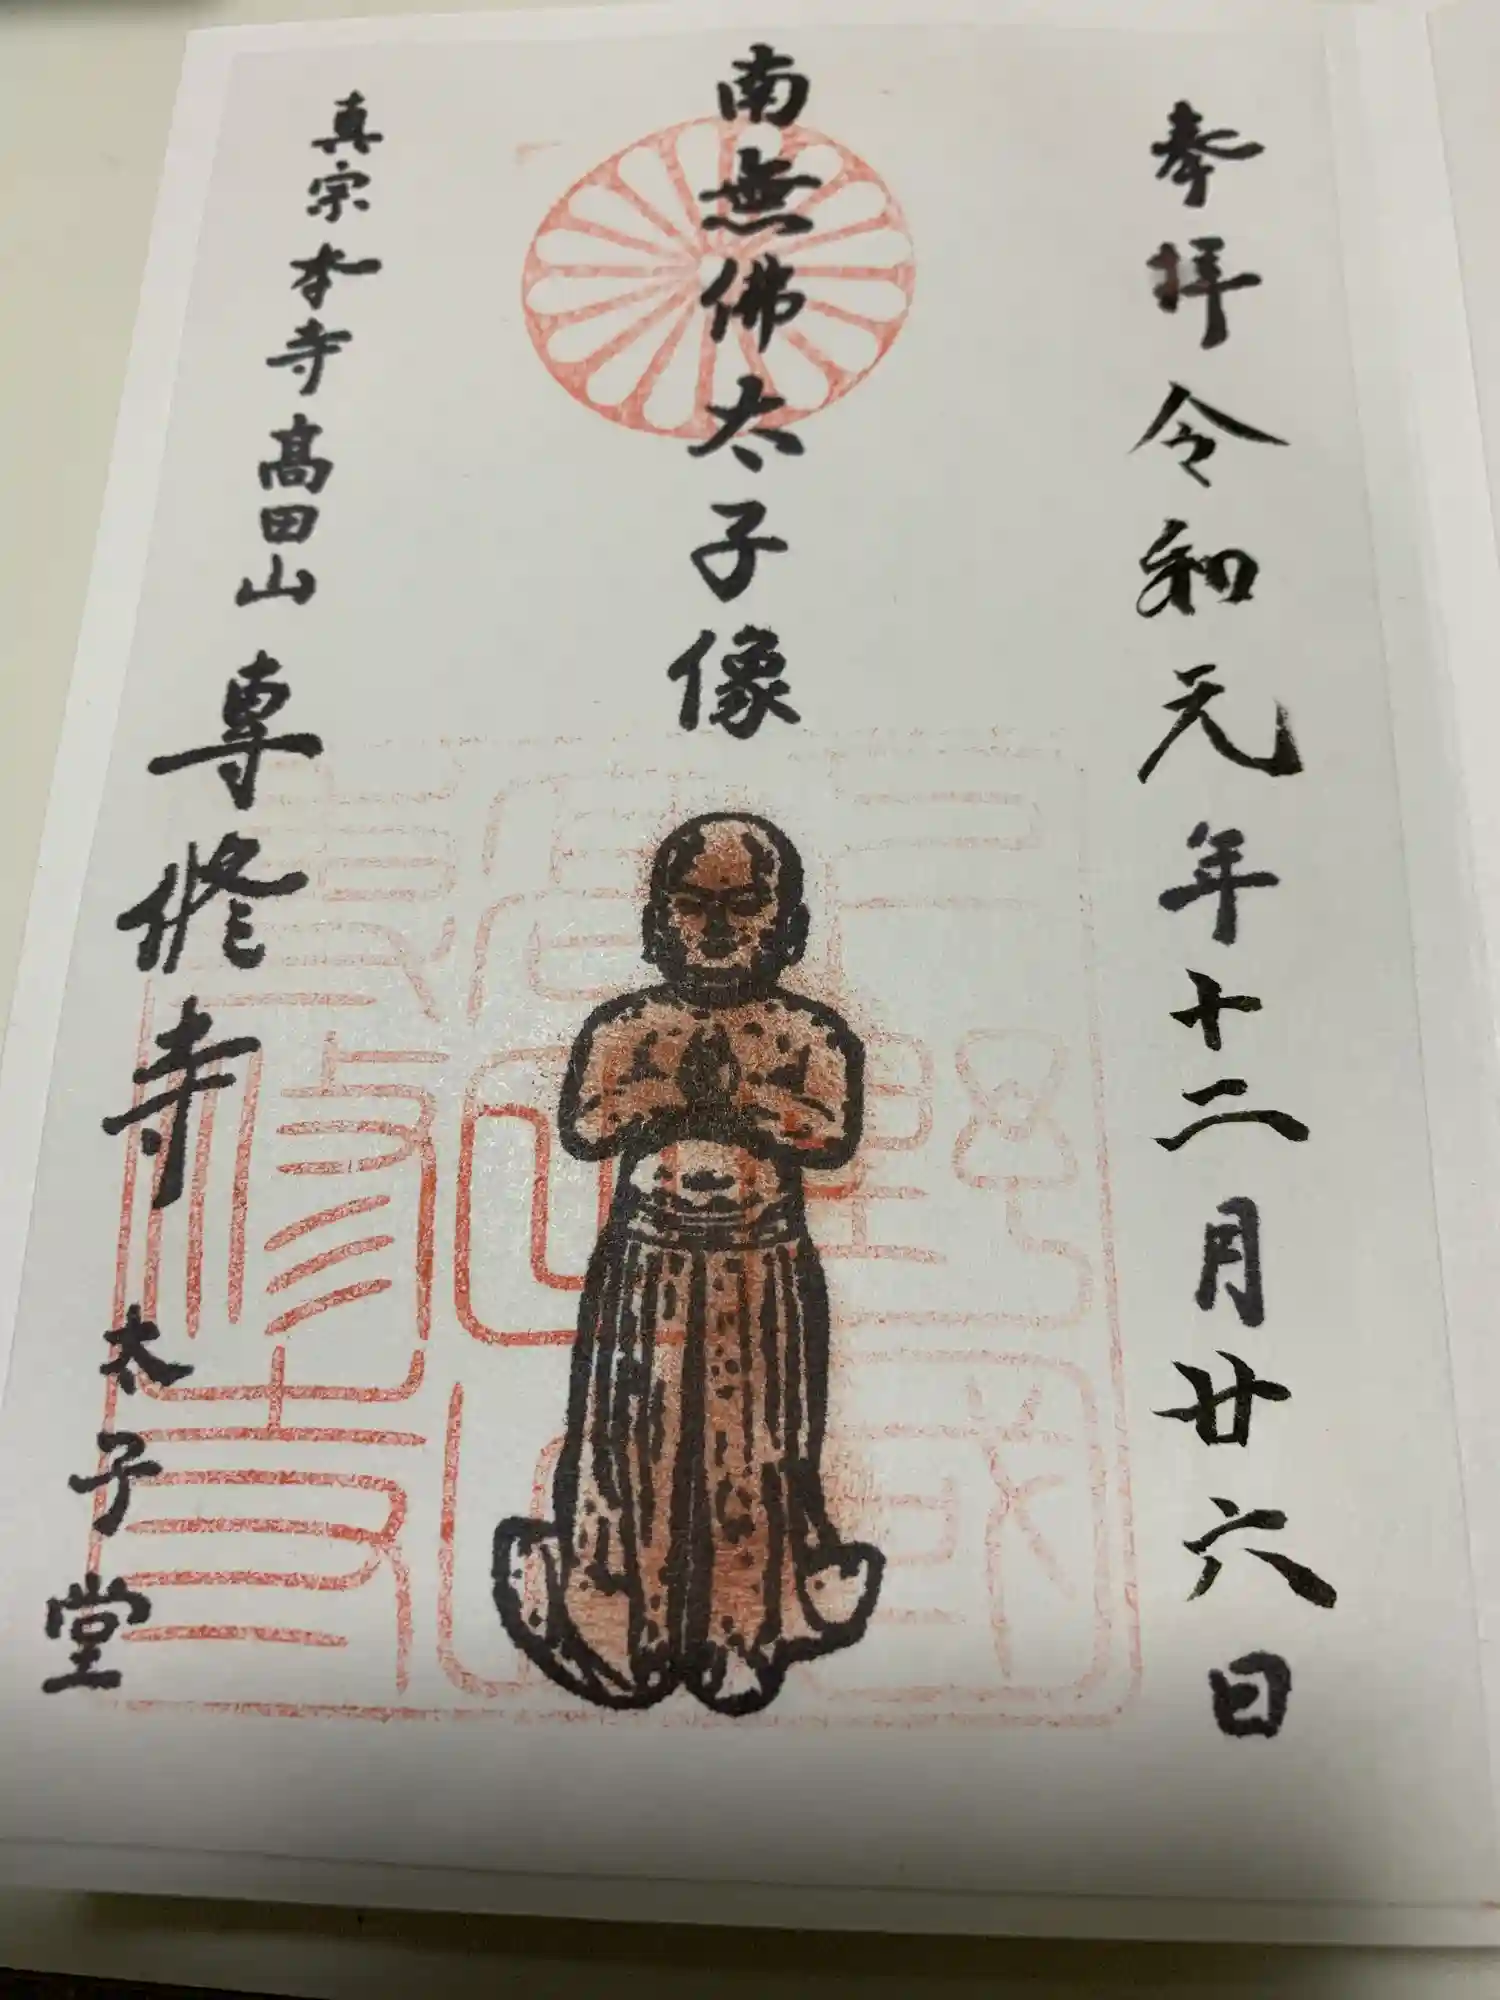 奉拝令和元年十二月廿六日
南無佛太子像
真宗本寺高田山専修寺太子堂